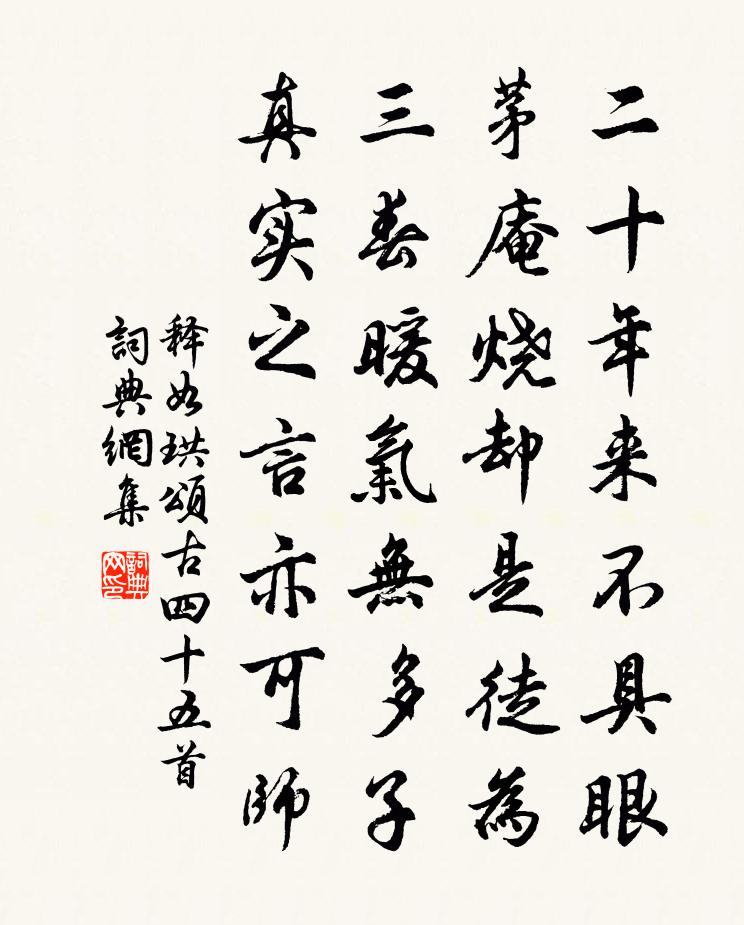 二十年来不具眼
茅庵烧却是徒為
三春暖氣無多子
真实之言亦可師
释如珙頌古四十五首
詞典網集
詞典網印